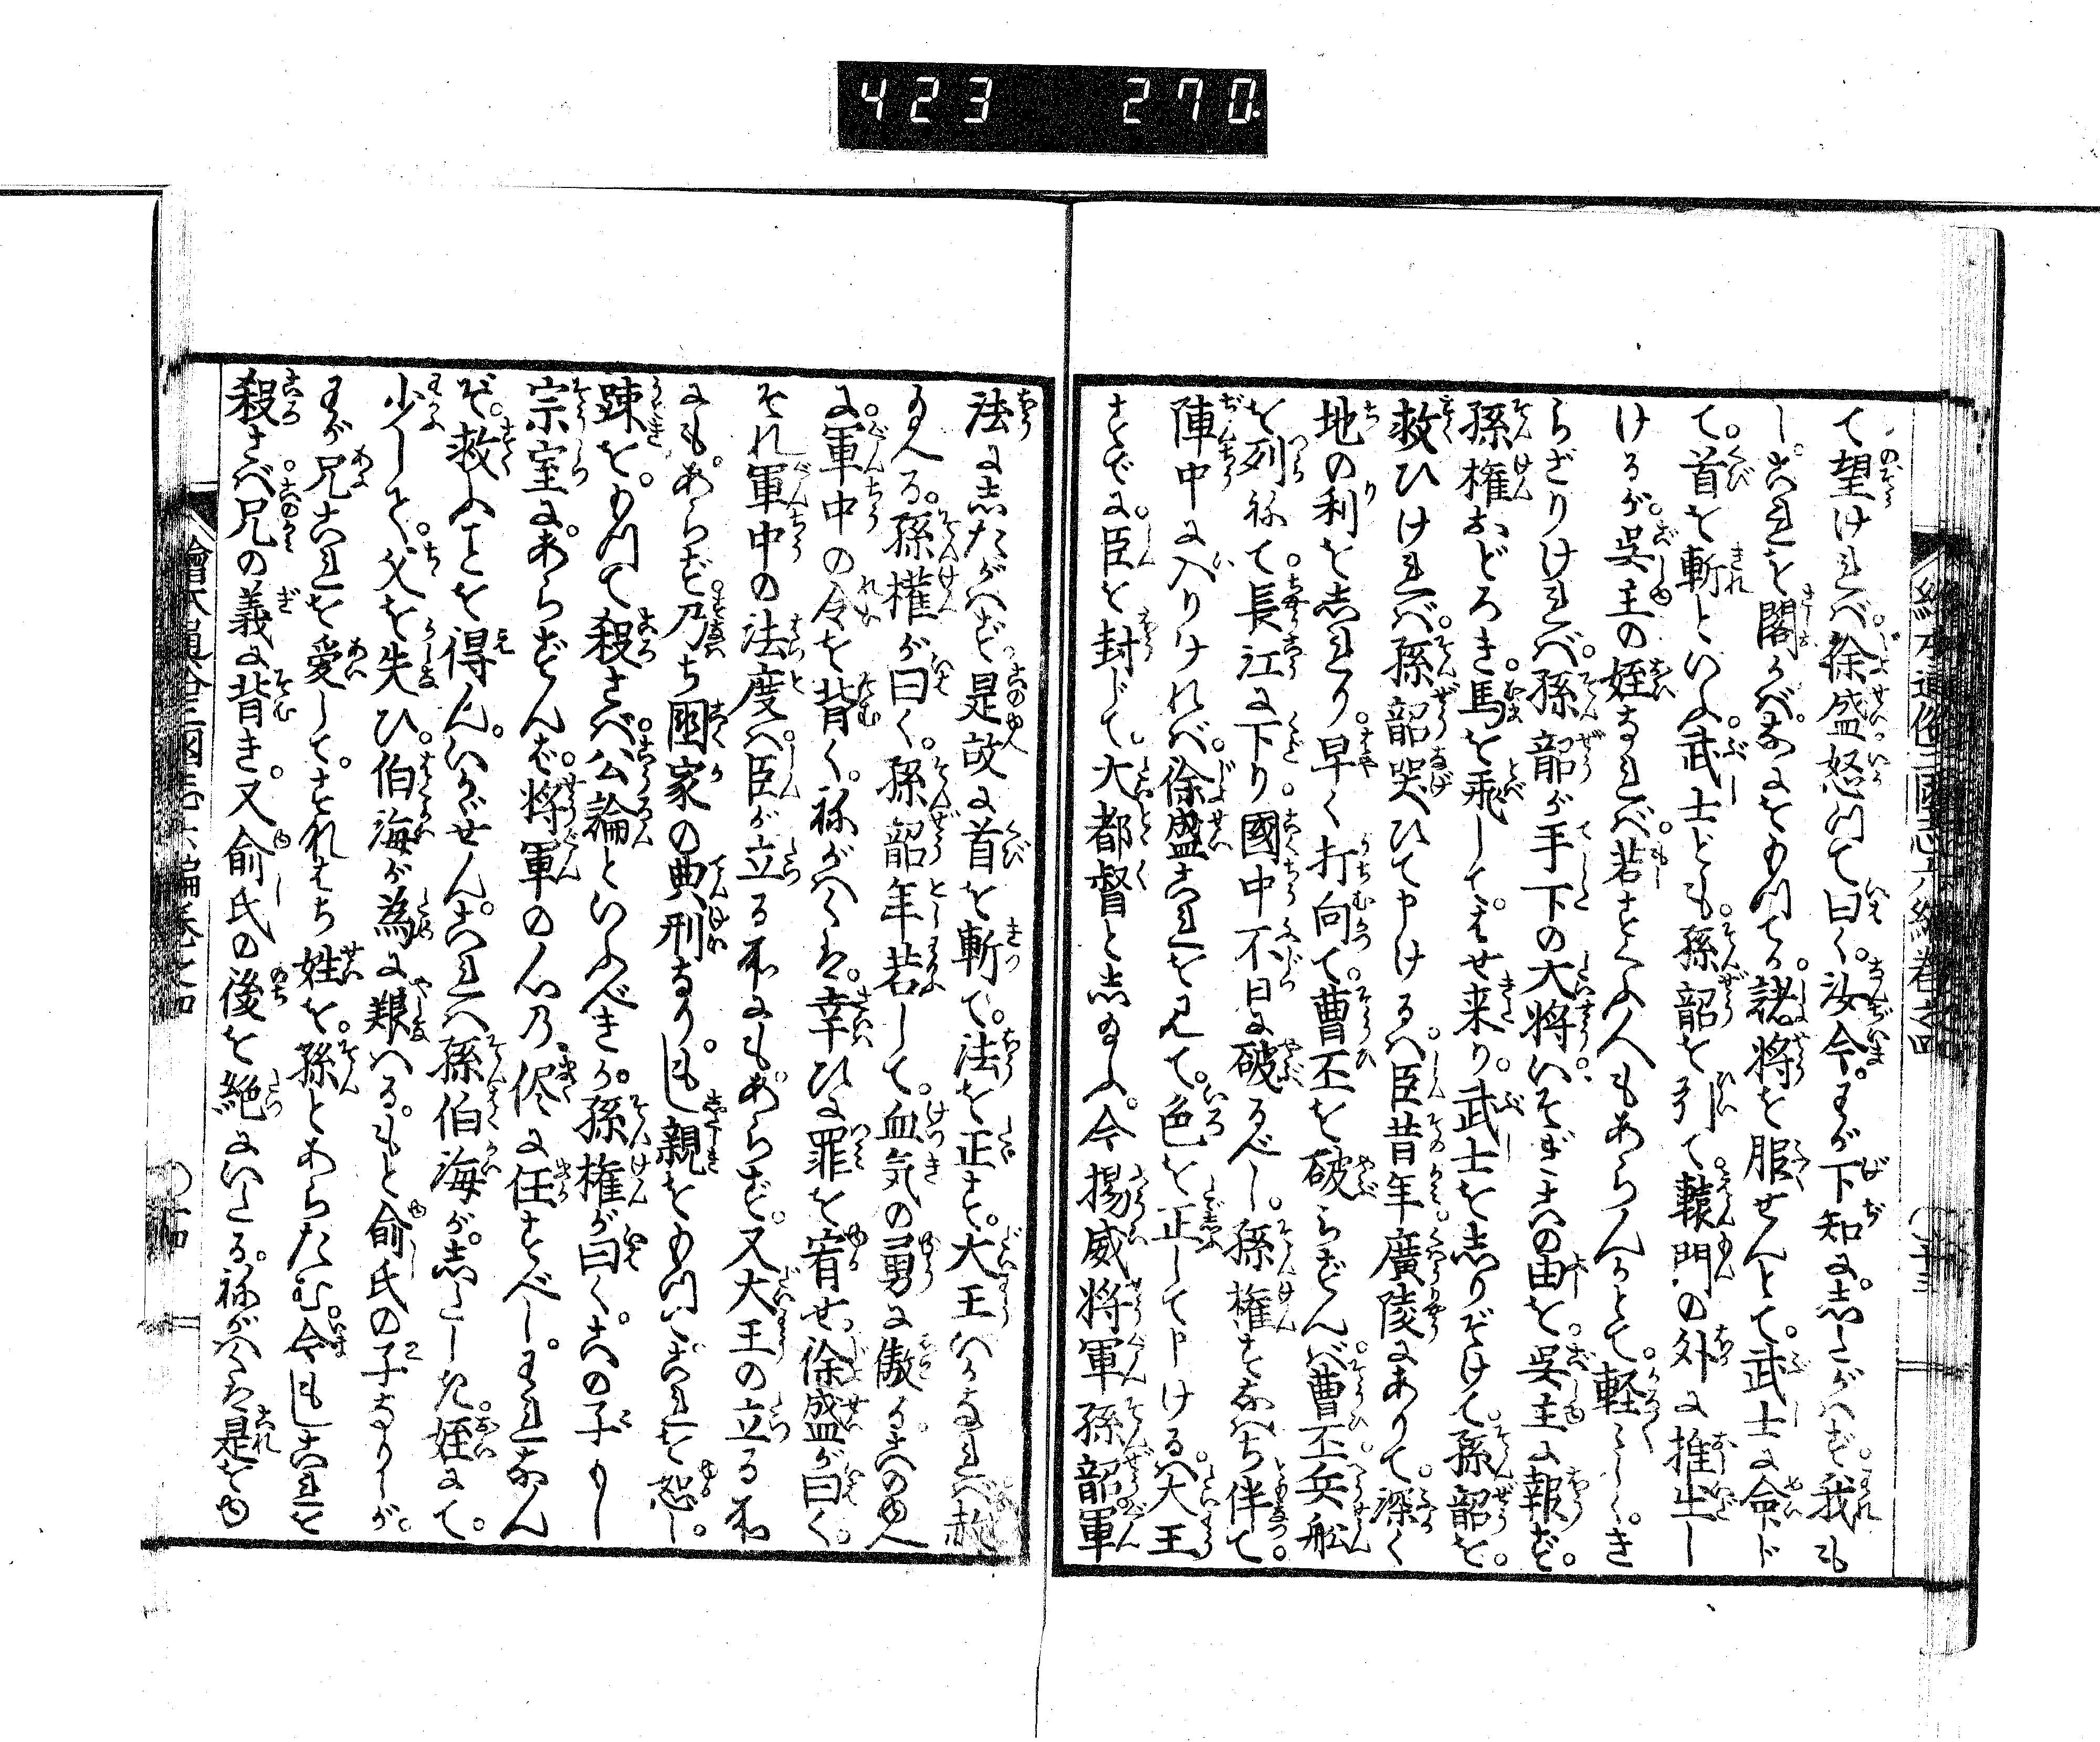 423 270
て望けれバ。徐盛怒つて曰く。汝今。わが下知に。志たがハず。我も
し。これを閣かバ。なにをもつてか。諸将を服せんとて。武士に命ド
て。首を斬といふ。武士ども。孫韶を引て。轅門の外に推出し
けるが。呉主の姪なれバ。若すくふ人もあらんかとて。軽〳〵しく。き
らざりけれバ。孫韶が手下の大将。いそぎこの由を。呉主に報ず。
孫権おどろき。馬を飛して。はせ来り。武士を志りぞけて。孫韶を。
救ひけれバ。孫韶哭ひて申けるハ。臣昔年。廣陵にありて。深く
地の利を志れり。早く打向て。曹丕を破らずんバ。曹丕兵船
を列ねて。長江に下り。國中不日に破るべし。孫権すなハち伴て。
陣中に入りけれバ。徐盛これを見て。色を正して申けるハ。大王
すでに。臣を封じて。大都督と志給ふ。今揚威将軍孫韶。軍
法に志たがハず。是故に首を斬て。法を正す。大王いかなれバ赦し
給へる。孫權が曰く。孫韶年若して。血気の勇に傲る。このゆへ
に。軍中の令を背く。ねがハくハ。幸ひに罪を宥せ。徐盛が曰く。
それ軍中の法度ハ。臣が立る所にもあらず。又大王の立る所
にも。あらず。乃ち國家の典刑なり。もし親をもつて。これを恕し。
疎を。もつて殺さバ。公論といふべきか。孫権が曰く。この子もし
宗室に。あらずんバ。将軍の心乃侭に任すべし。われなん
ぞ。救ふことを得ん。いかがせん。これハ孫伯海が。志たしき。姪にて。
少して。父を失ひ。伯海が為に艱ハる。もと俞氏の子なりしが。
わが兄これを愛して。すなハち姓を。孫とあらたむ。今もしこれを
殺さバ。兄の義に背き。又俞氏の後を絶にいたる。ねがハくハ是をゆ